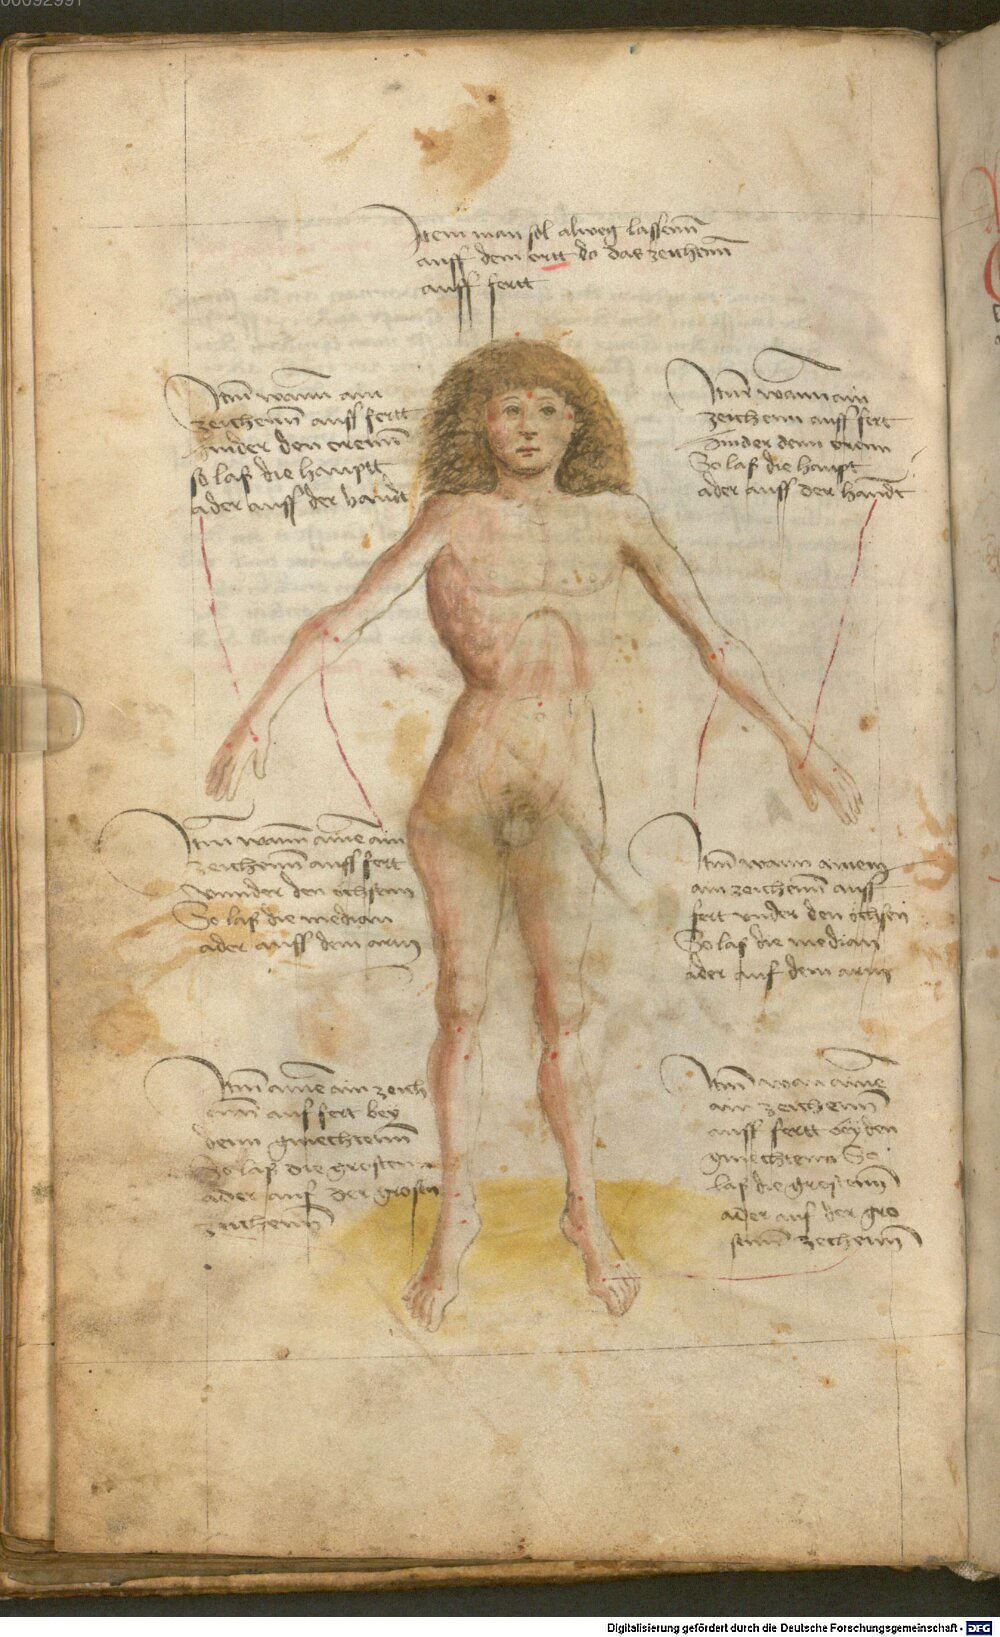 00092991
Item man sol alweg lassenn
auff dem ortt do das zeichenn
auff fertt
Itm wann ain
zeichenn auff fertt
hinder den orenn
so laß die hauptt
ader auff der handt
Itm wann ain
zeichenn auff fert
hinder denn orenn
So laß die haupt
ader auff der handt
Itm wann aine ain
zeichenn auff fert
vnnder den öchsenn
So laß die median
ader auff dem arm
Itm wann ainem
ain zeichenn auff
fert vnder den öchsen
So laß die median
ader auf dem arm
Itm aine ain zeich
enn auf fert bey
denn gmechtenn
So laß die grosten
ader auf der grosen
zechenn
Itm wan aine
ain zeichenn
auff fertt bey den
gmechtenn So
laß die grostenn
ader auf der gro
senn zechenn
Digitalisierung gefördert durch die Deutsche Forschungsgemeinschaft - DFG